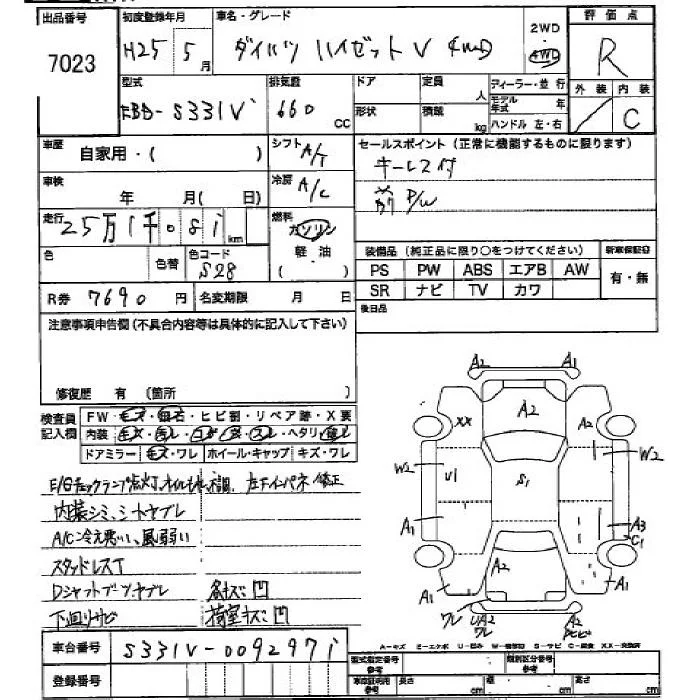 出品番号 初度登録年月 車名・グレード 評価点
7023 H25 5月 ダイハツ ハイゼットV 4WD 2WD 4WD R
型式 排気量 ドア 定員 人 ディーラー・並行 外装 内装
EBD-S331V 660 cc 形状 積載 kg モデル年式 年 ハンドル 左・右 C
車歴 自家用・( ) シフト A/T セールスポイント(正常に機能するものに限ります)
キーレス付
車検 年 月( 日) 冷房 A/C 前P/W
走行 25万1千081km 燃料 ガソリン
軽・油
( )
色 色替 色コード S28 装備品(純正品に限り○をつけてください) 新車保証書
PS PW ABS エアB AW 有・無
SR ナビ TV カワ
R券 7690円 名変期限 月 日 後日品
注意事項申告欄(不具合内容等は具体的に記入して下さい)
修復歴 有(箇所 )
検査員記入欄 FW・キズ・飛石・ヒビ割・リペア跡・X要
内装・キズ・ヨゴレ・コゲ・スレ・ヘタリ
ドアミラー・キズ・ワレ ホイール・キャップ・キズ・ワレ
E/Gチェックランプ点灯、オイルもれ、不調 左Fインパネ修正
内装シミ、シートヤブレ
A/C冷え悪い、風弱い
スタッドレスT
Dシャフトブーツヤブレ 各キズ凹
下回りサビ 荷室キズ凹
A2 A1
XX A2 A2
W2 U1 S1 W2
A1 A3
C1
A1 A2 A1
ワレ UA2 ワレ A2
A-キズ E-エクボ U-凹み W-補修跡 S-サビ C-腐食 XX-交換済
車台番号 S331V-0092971 型式指定番号 類別区分番号
登録番号 車庫証明用参考 長さ cm 幅 cm 高さ cm